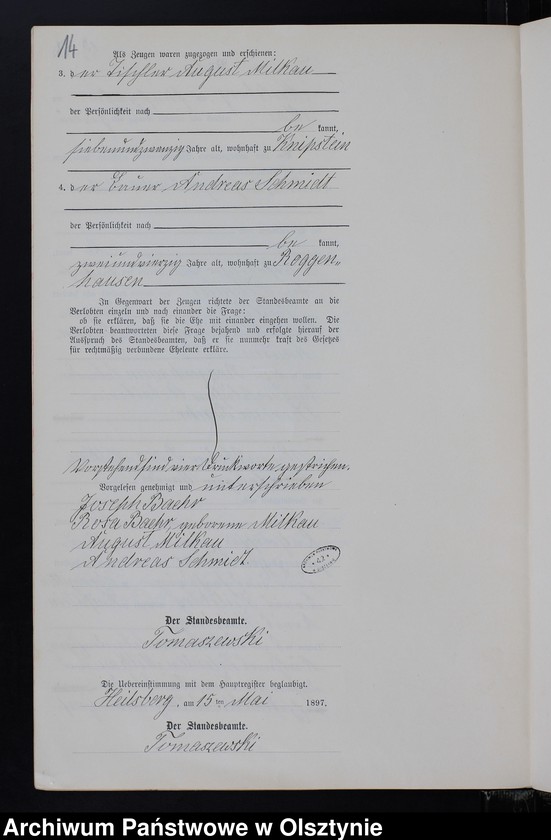 14
Als Zeugen waren zugezogen und erschienen:
3. der Tischler August Milkau
der Persönlichkeit nach
be kannt,
siebenundzwanzig Jahre alt, wohnhaft zu Knipstein
4. der Bauer Andreas Schmidt
der Persönlichkeit nach
be kannt,
zweiundvierzig Jahre alt, wohnhaft zu Roggen„
hausen
In Gegenwart der Zeugen richtete der Standesbeamte an die
Verlobten einzeln und nach einander die Frage:
ob sie erklären, daß sie die Ehe mit einander eingehen wollen. Die
Verlobten beantworteten diese Frage bejahend und erfolgte hierauf der
Ausspruch des Standesbeamten, daß er sie nunmehr kraft des Gesetzes
für rechtmäßig verbundene Eheleute erkläre.
Vorstehend sind vier Druckworte gestrichen.
Vorgelesen genehmigt und unterschrieben
Joseph Baehr
Rosa Baehr, geborene Milkau
August Milkau
Andreas Schmidt.
Der Standesbeamte.
Tomaszewski
Die Uebereinstimmung mit dem Hauptregister beglaubigt.
Heilsberg, am 15ten Mai 1897.
Der Standesbeamte.
Tomaszewski
Archiwum Państwowe w Olsztynie